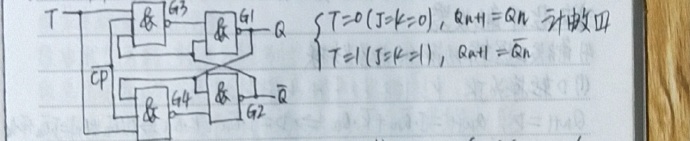 T & G3 & G1 Q
C̄P̄
& G4 & G2 Q̄
{ T=0 (J=K=0), Qn+1=Qn
T=1 (J=K=1), Qn+1=Q̄n